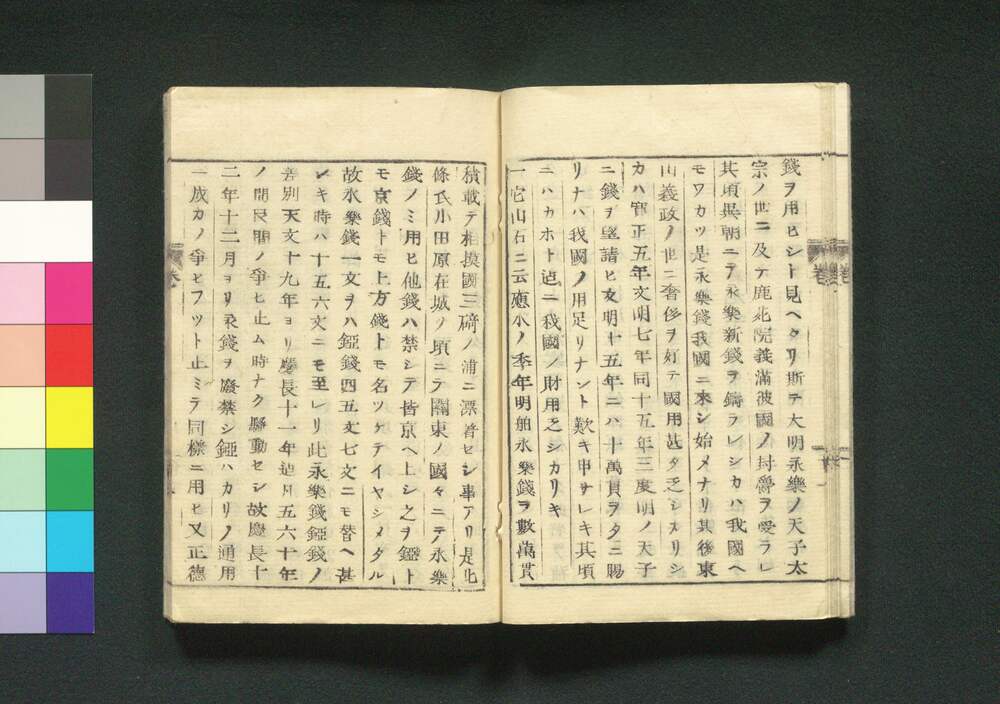 錢ヲ用ヒシト見ヘタリ斯テ大明永樂ノ天子太
宗ノ世ニ及テ鹿苑院義滿彼國ノ封爵ヲ受ラレ
其頃異朝ニテ永樂新錢ヲ鑄ラレシカハ我國ヘ
モワカツ是永樂錢我國ニ來シ始メナリ其後東
山義政ノ世ニ奢侈ヲ好テ國用甚タ乏シカリシ
カハ寶正五年文明七年同十五年三度明ノ天子
ニ錢ヲ望請ヒ文明十五年ニハ十萬貫ヲタニ賜
リナハ我國ノ用足リナント歎キ申サレキ其頃
ニハカホト迠ニ我國ノ財用乏シカリキ
一它山石ニ云應永ノ季年明舶永樂錢ヲ數萬貫
積載テ相摸國三碕ノ浦ニ漂着セシ事アリ是北
條氏小田原在城ノ頃ニテ關東ノ國々ニテ永樂
錢ノミ用ヒ他錢ハ禁シテ皆京ヘ上シ之ヲ鐚ト
モ京錢トモ上方錢トモ名ツケテイヤシメタル
故永樂錢一文ヲハ鐚錢四五文七文ニモ替ヘ甚
シキ時ハ十五六文ニモ至レリ此永樂錢鐚錢ノ
差別天文十九年ヨリ慶長十一年迠凡五六十年
ノ間民間ノ爭ヒ止ム時ナク騷動セシ故慶長十
二年十二月ヨリ永錢ヲ廢禁シ鐚ハカリノ通用
一成カノ爭ヒフット止ミテ同樣ニ用ヒ又正德
卷